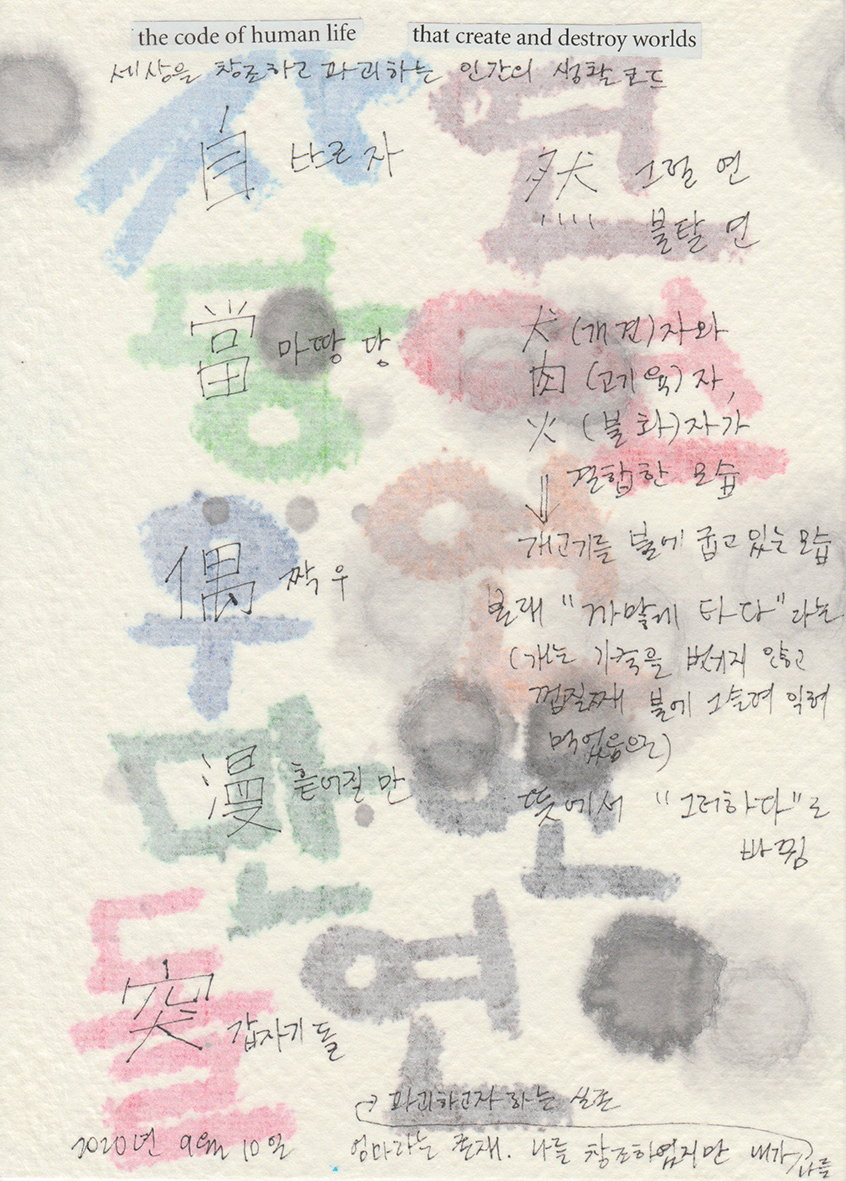 the code of human life that create and destroy worlds
세상을 창조하고 파괴하는 인간의 생활코드
自 바르 자 然 그럴 연
불탈 연
當 마땅 당 犬 (개 견)자와
肉 (고기 육)자,
火 (불 화)자가
결합한 모습
개고기를 불에 굽고 있는 모습
偶 짝 우
본래 "까맣게 타다"라는
(개는 가죽을 벗기지 않고
껍질째 불에 그슬려 익혀
먹었음으로)
漫 흩어질 만
뜻에서 "그러하다"로
바뀜
突 갑자기 돌
파괴하고자 하는 실존
2020년 9월 10일 엄마라는 존재. 나를 창조하였지만 내가 나를
자 연
당
우
만
돌